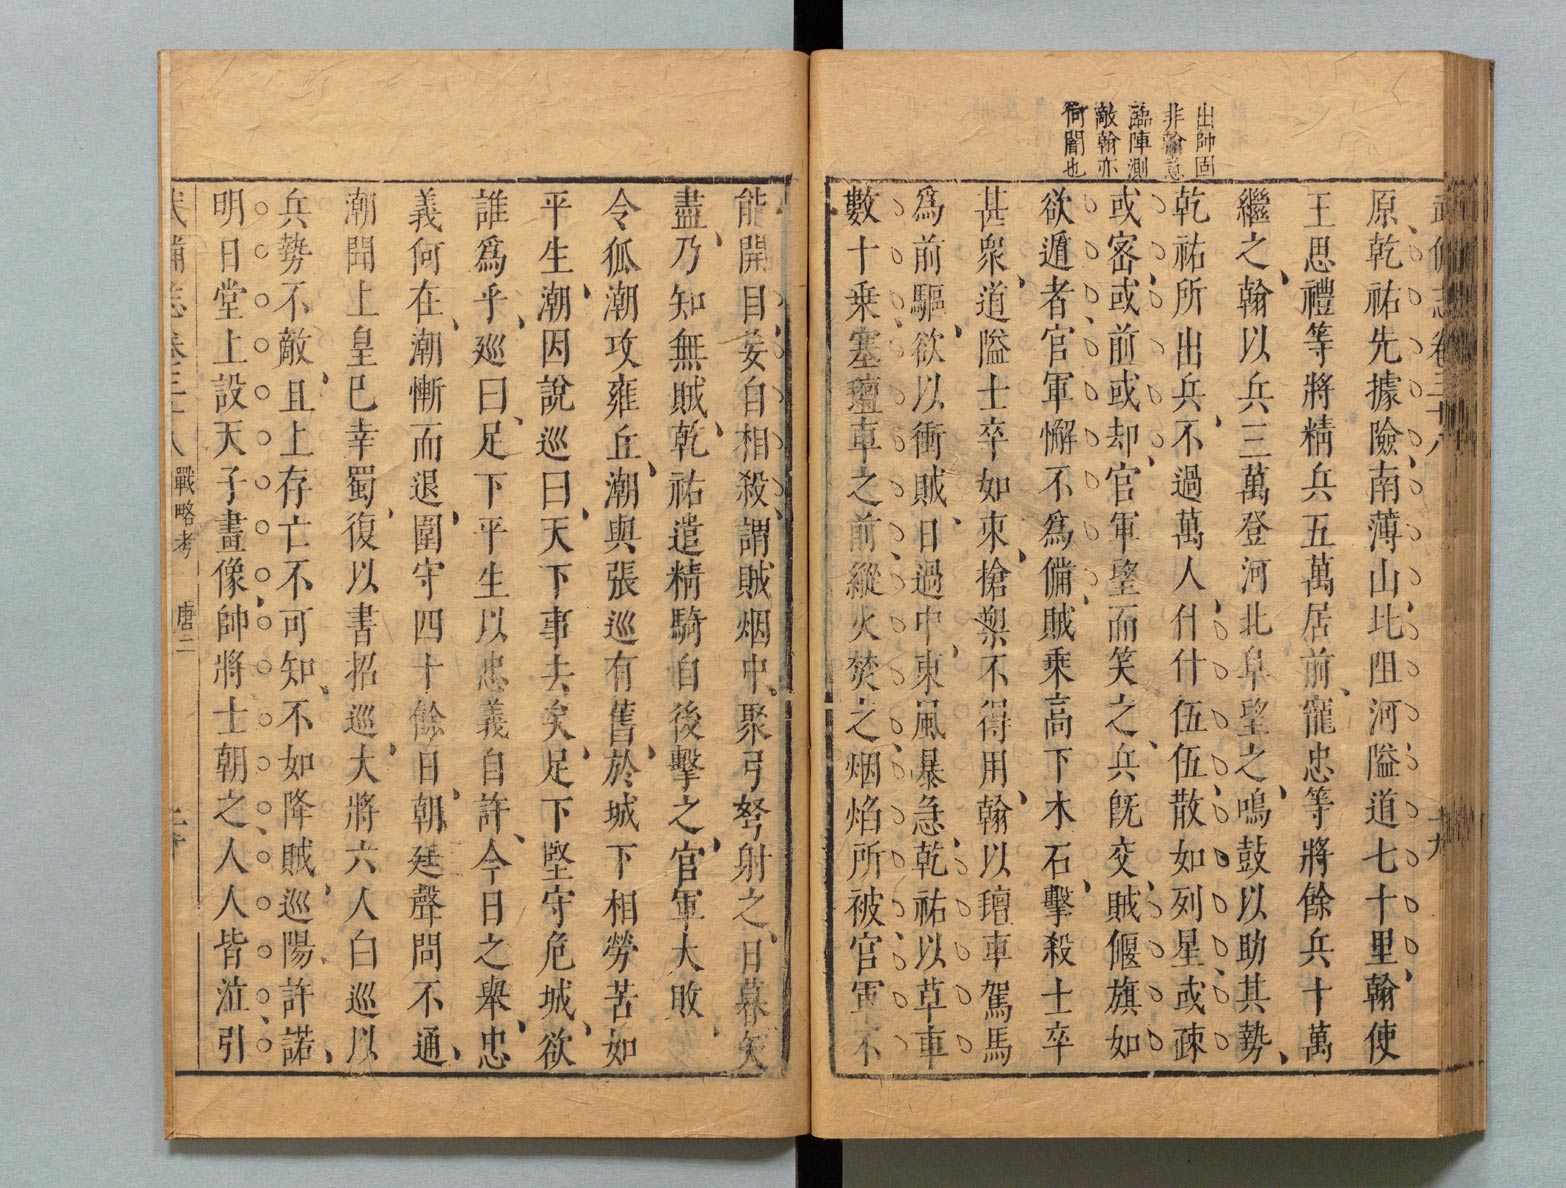 出帥固
非翰意
臨陣測
敵翰亦
何闇也
武備志卷三十八
十九
原乾祐先據險南薄山北阻河隘道七十里翰使
王思禮等將精兵五萬居前寵忠等將餘兵十萬
繼之翰以兵三萬登河北阜望之鳴鼓以助其勢
乾祐所出兵不過萬人什什伍伍散如列星或疎
或密或前或却官軍望而笑之兵旣交賊偃旗如
欲遁者官軍懈不爲備賊乘高下木石擊殺士卒
甚衆道隘士卒如束槍槊不得用翰以氊車駕馬
爲前驅欲以衝賊日過中東風暴急乾祐以草車
數十乗塞氊車之前縱火焚之烟焰所被官軍不
能開目妄自相殺謂賊烟中聚弓弩射之日暮矢
盡乃知無賊乾祐遣精騎自後擊之官軍大敗
令狐潮攻雍丘潮與張巡有舊於城下相勞苦如
平生潮因說巡曰天下事去矣足下堅守危城欲
誰爲乎巡曰足下平生以忠義自許今日之舉忠
義何在潮慚而退圍守四十餘日朝廷聲問不通
潮聞上皇已幸蜀復以書招巡大將六人白巡以
兵勢不敵且上存亡不可知不如降賊巡陽許諾
明日堂上設天子畫像帥將士朝之人人皆泣引
武備志卷三十八 戰略考 唐二 二十